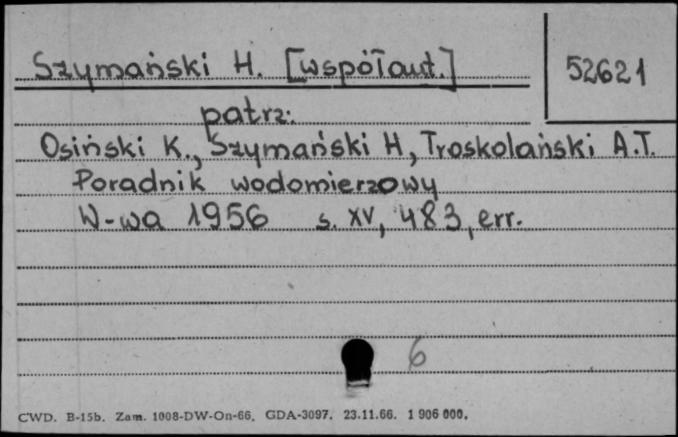 Szymański H. [współaut.]
52621
patrz:
Osiński K., Szymański H, Troskolański A.T.
Poradnik wodomierzowy
W-wa 1956 s. XV, 483, err.
6
CWD. B-15b. Zam. 1008-DW-On-66. GDA-3097. 23.11.66. 1 906 000.